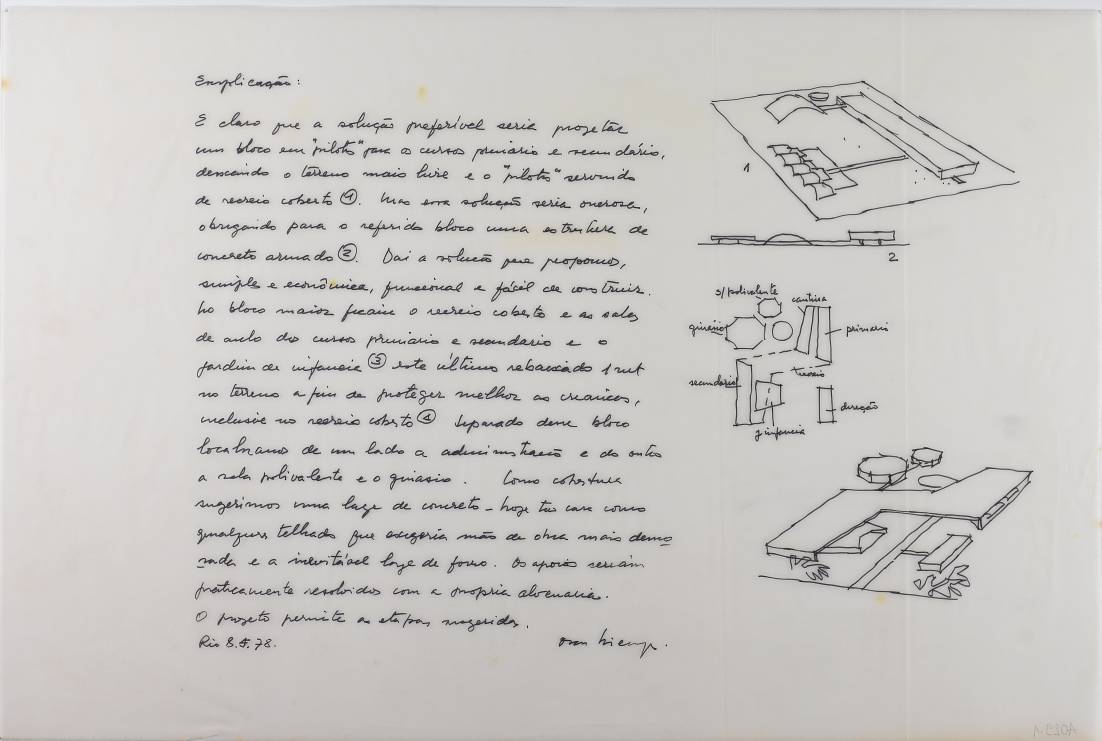 Explicação:
É claro que a solução preferível seria projetar
um bloco em "pilotis" para os cursos primário e secundário,
deixando o terreno mais livre e o "pilotis" servindo
de recreio coberto ①. Mas essa solução seria onerosa,
obrigando para o referido bloco uma estrutura de
concreto armado ②. Dai a solução que propomos,
simples e econômica, funcional e fácil de construir.
No bloco maior ficam o recreio coberto e as salas
de aula dos cursos primário e secundario e o
jardim de infancia ③ este último rebaixado 1 mt
no terreno a fim de proteger melhor as crianças,
inclusive no recreio coberto ④ Separado desse bloco
localizamos de um lado a administração e do outro
a sala polivalente e o ginasio. Como cobertura
sugerimos uma lage de concreto - hoje tão cara como
qualquer telhado que exigiria mão de obra mais demo
rada e a inevitável lage de forro. Os apoios seriam
praticamente resolvidos com a propria alvenaria.
O projeto permite as etapas sugeridas.
Rio 8.5.78.
1
2
s/polivalente
cantina
ginásio
primario
recreio
secundario
direção
j infancia